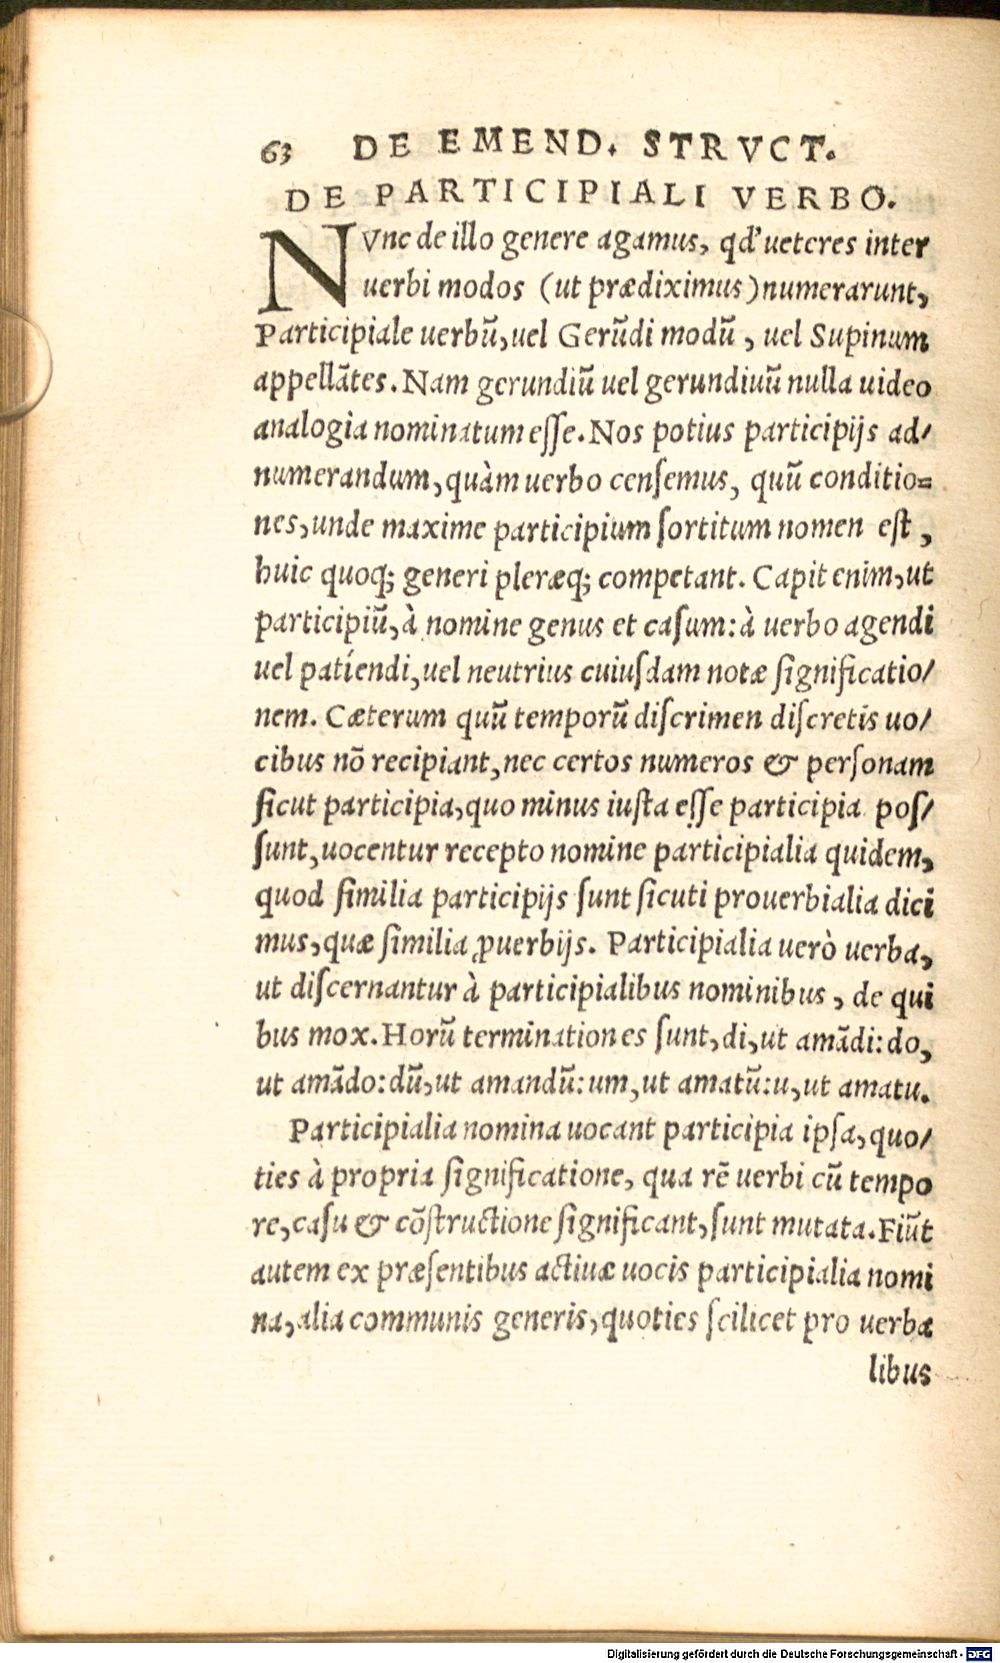 63 DE EMEND. STRVCT.
DE PARTICIPIALI VERBO.
NVnc de illo genere agamus, qđ ueteres inter
uerbi modos (ut prædiximus) numerarunt,
Participiale uerbū, uel Gerūdi modū, uel Supinum
appellātes. Nam gerundiū uel gerundiuū nulla uideo
analogia nominatum eſſe. Nos potius participijs ad/
numerandum, quàm uerbo cenſemus, quū conditio=
nes, unde maxime participium ſortitum nomen eſt,
huic quoq; generi pleræq; competant. Capit enim, ut
participiū, à nomine genus et caſum: à uerbo agendi
uel patiendi, uel neutrius cuiuſdam notæ ſignificatio/
nem. Cæterum quū temporū diſcrimen diſcretis uo/
cibus nō recipiant, nec certos numeros & perſonam
ſicut participia, quo minus iuſta eſſe participia poſ/
ſunt, uocentur recepto nomine participialia quidem,
quod ſimilia participijs ſunt ſicuti prouerbialia dici
mus, quæ ſimilia ꝓuerbijs. Participialia uerò uerba,
ut diſcernantur à participialibus nominibus, de qui
bus mox. Horū terminationes ſunt, di, ut amādi: do,
ut amādo: dū, ut amandū: um, ut amatū: u, ut amatu.
Participialia nomina uocant participia ipſa, quo/
ties à propria ſignificatione, qua rē uerbi cū tempo
re, caſu & cōſtructione ſignificant, ſunt mutata. Fiūt
autem ex præſentibus actiuæ uocis participialia nomi
na, alia communis generis, quoties ſcilicet pro uerba
libus
Digitalisierung gefördert durch die Deutsche Forschungsgemeinschaft - DFG